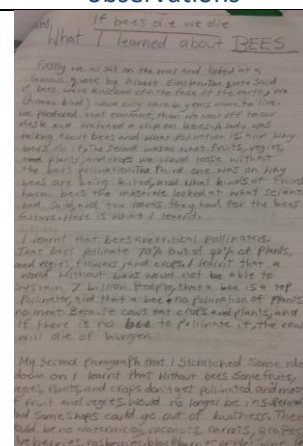 Observations
If bees die we die
What I learned about BEES
Firstly we all sat on the mat and looked at a
famous quote by Albert Einstein. The quote said
if bees were kind off the face of the earth, we
(human kind) would only have 4 years more to live.
we pondered that comment, then we was off to our
desks and watched a clip on bees. A lady was
talking about Bees and what Pollination is and why
bees do it, The second was on what fruits, vegies,
and plants, and crops we would loose without
the bees pollination. The third one was on why
bees are being killed, and what kinds of things
harm bees the last one looked at what scientist
had said, and the ideas they had for the bees
future. Here is what I learnt.
I learnt that bees are critical pollinators.
That bees pollinate 70% out of 90% of plants,
and vegies, flowers and crops. I learnt that a
world without bees would not be able to
sustain 7 billion people, that a bee is a top
Pollinator, and that a bee no polination of plants
no meat. Because cows eat crops and plants, and
if there is no bee to pollinate it, the cow
will die of hunger.
My second paragraph that I scratched some ide
down on I learnt that without bees some fruits,
veges, plants, and crops don't get pollinated and most
fruit and vegies would no longer be in
and some shops could go out of business. The
would be no watermelon, coconuts, carrots, grapes